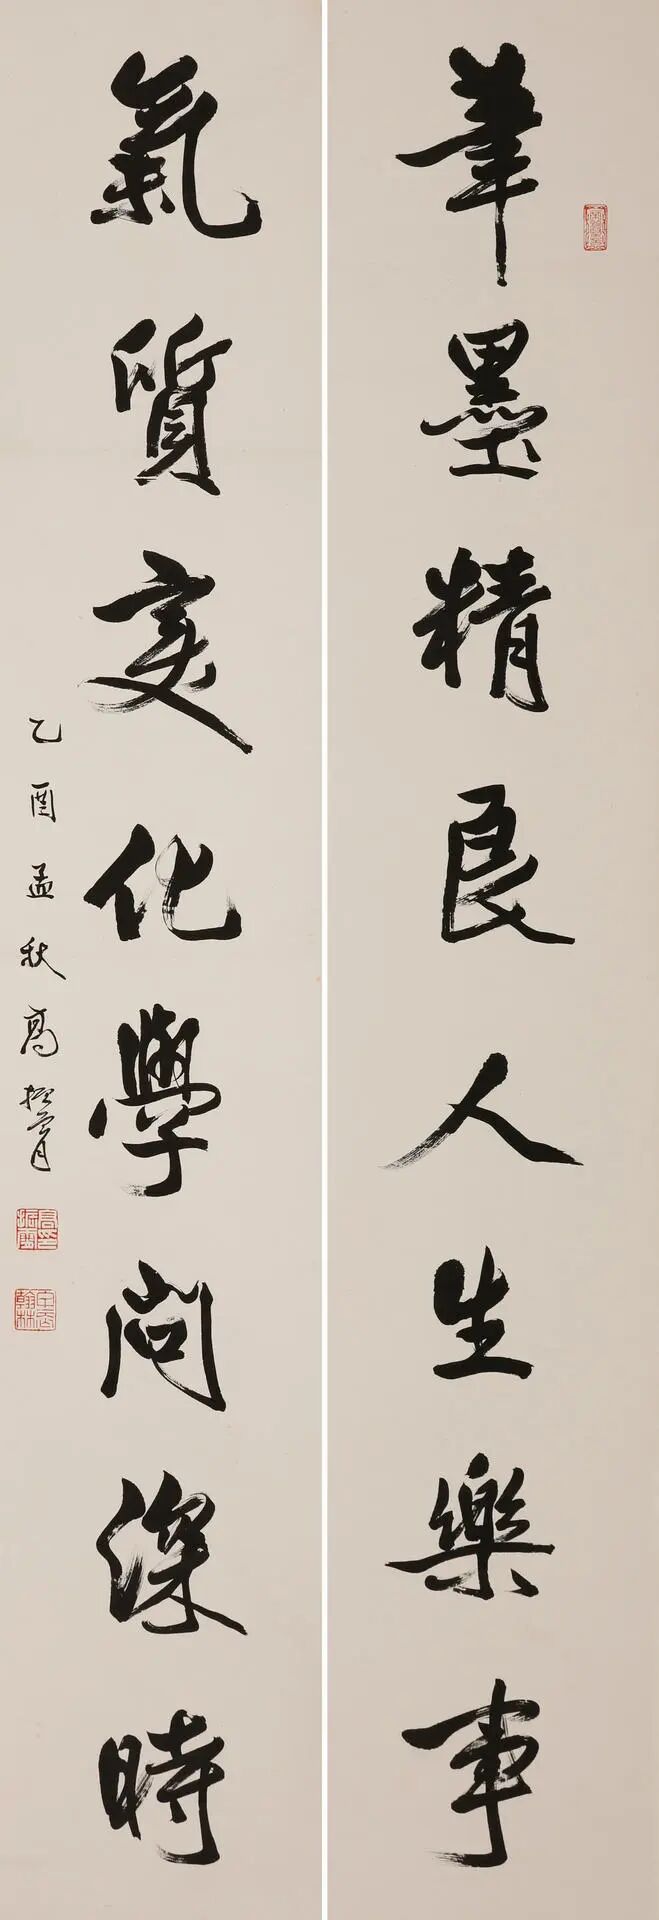 筆墨精良人生樂事
氣質變化學問深時
乙酉孟秋高振霄